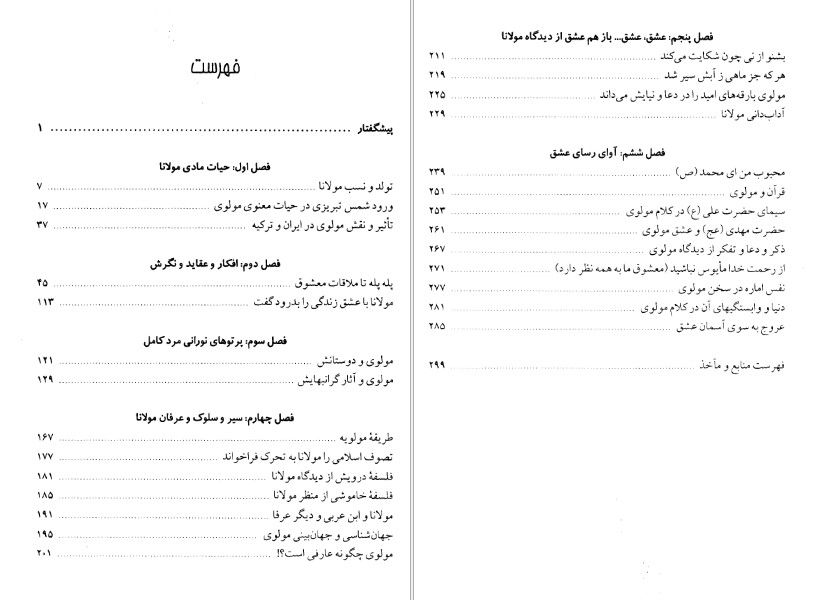 فهرست
پیشگفتار ........ ۱
فصل اول: حیات مادی مولانا
تولد و نسب مولانا ........ ۷
ورود شمس تبریزی در حیات معنوی مولوی ........ ۱۷
تأثیر و نقش مولوی در ایران و ترکیه ........ ۳۷
فصل دوم: افکار و عقاید و نگرش
پله پله تا ملاقات معشوق ........ ۴۵
مولانا با عشق زندگی را بدرود گفت ........ ۱۱۳
فصل سوم: پرتوهای نورانی مرد کامل
مولوی و دوستانش ........ ۱۲۱
مولوی و آثار گرانبهایش ........ ۱۲۹
فصل چهارم: سیر و سلوک و عرفان مولانا
طریقهٔ مولویه ........ ۱۶۷
تصوف اسلامی را مولانا به تحرک فراخواند ........ ۱۷۷
فلسفهٔ درویش از دیدگاه مولانا ........ ۱۸۱
فلسفهٔ خاموشی از منظر مولانا ........ ۱۸۵
مولانا و ابن عربی و دیگر عرفا ........ ۱۹۱
جهان‌شناسی و جهان‌بینی مولوی ........ ۱۹۵
مولوی چگونه عارفی است؟! ........ ۲۰۱
فصل پنجم: عشق، عشق... باز هم عشق از دیدگاه مولانا
بشنو از نی چون شکایت می‌کند ........ ۲۱۱
هر که جز ماهی ز آبش سیر شد ........ ۲۱۹
مولوی بارقه‌های امید را در دعا و نیایش می‌داند ........ ۲۲۵
آداب‌دانی مولانا ........ ۲۲۹
فصل ششم: آوای رسای عشق
محبوب من ای محمد (ص) ........ ۲۳۹
قرآن و مولوی ........ ۲۵۱
سیمای حضرت علی (ع) در کلام مولوی ........ ۲۵۳
حضرت مهدی (عج) و عشق مولوی ........ ۲۶۱
ذکر و دعا و تفکر از دیدگاه مولوی ........ ۲۶۷
از رحمت خدا مأیوس نباشید (معشوق ما به همه نظر دارد) ........ ۲۷۱
نفس اماره در سخن مولوی ........ ۲۷۷
دنیا و وابستگیهای آن در کلام مولوی ........ ۲۸۱
عروج به سوی آسمان عشق ........ ۲۸۵
فهرست منابع و مآخذ ........ ۲۹۹